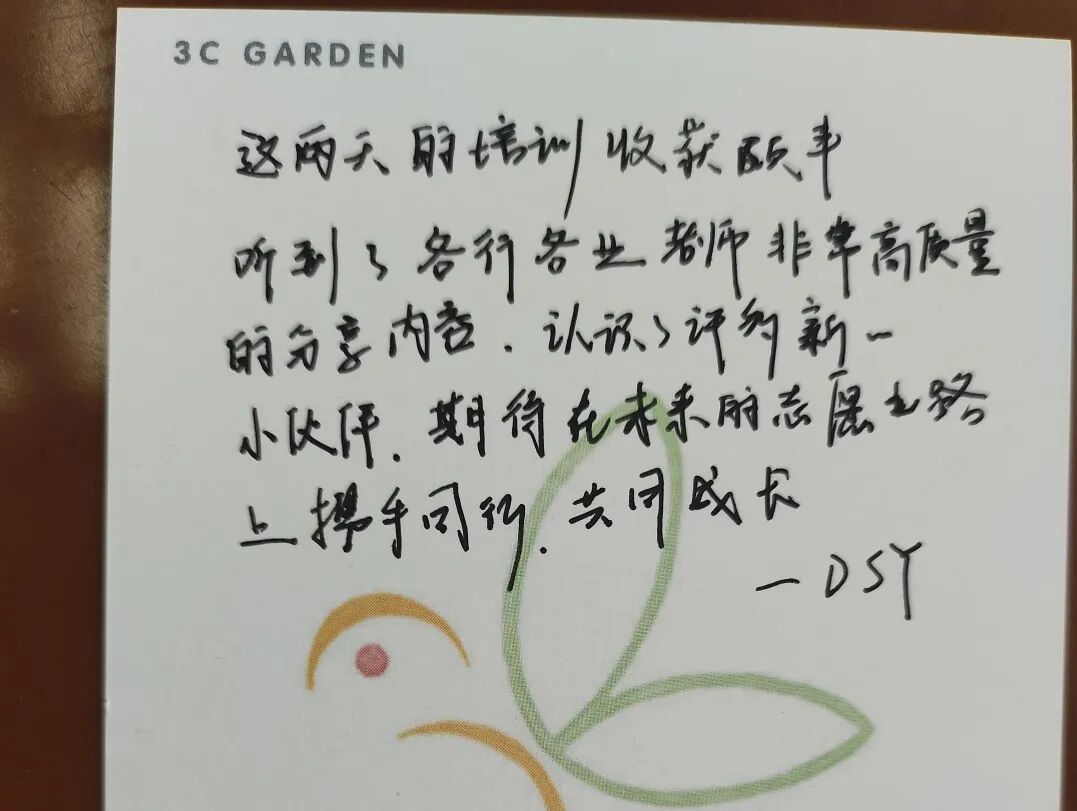 3C GARDEN
这两天的培训收获颇丰
听到了各行各业老师非常高质量
的分享内容.认识了许多新一
小伙伴.期待在未来的志愿之路
上携手同行.共同成长
—DSY